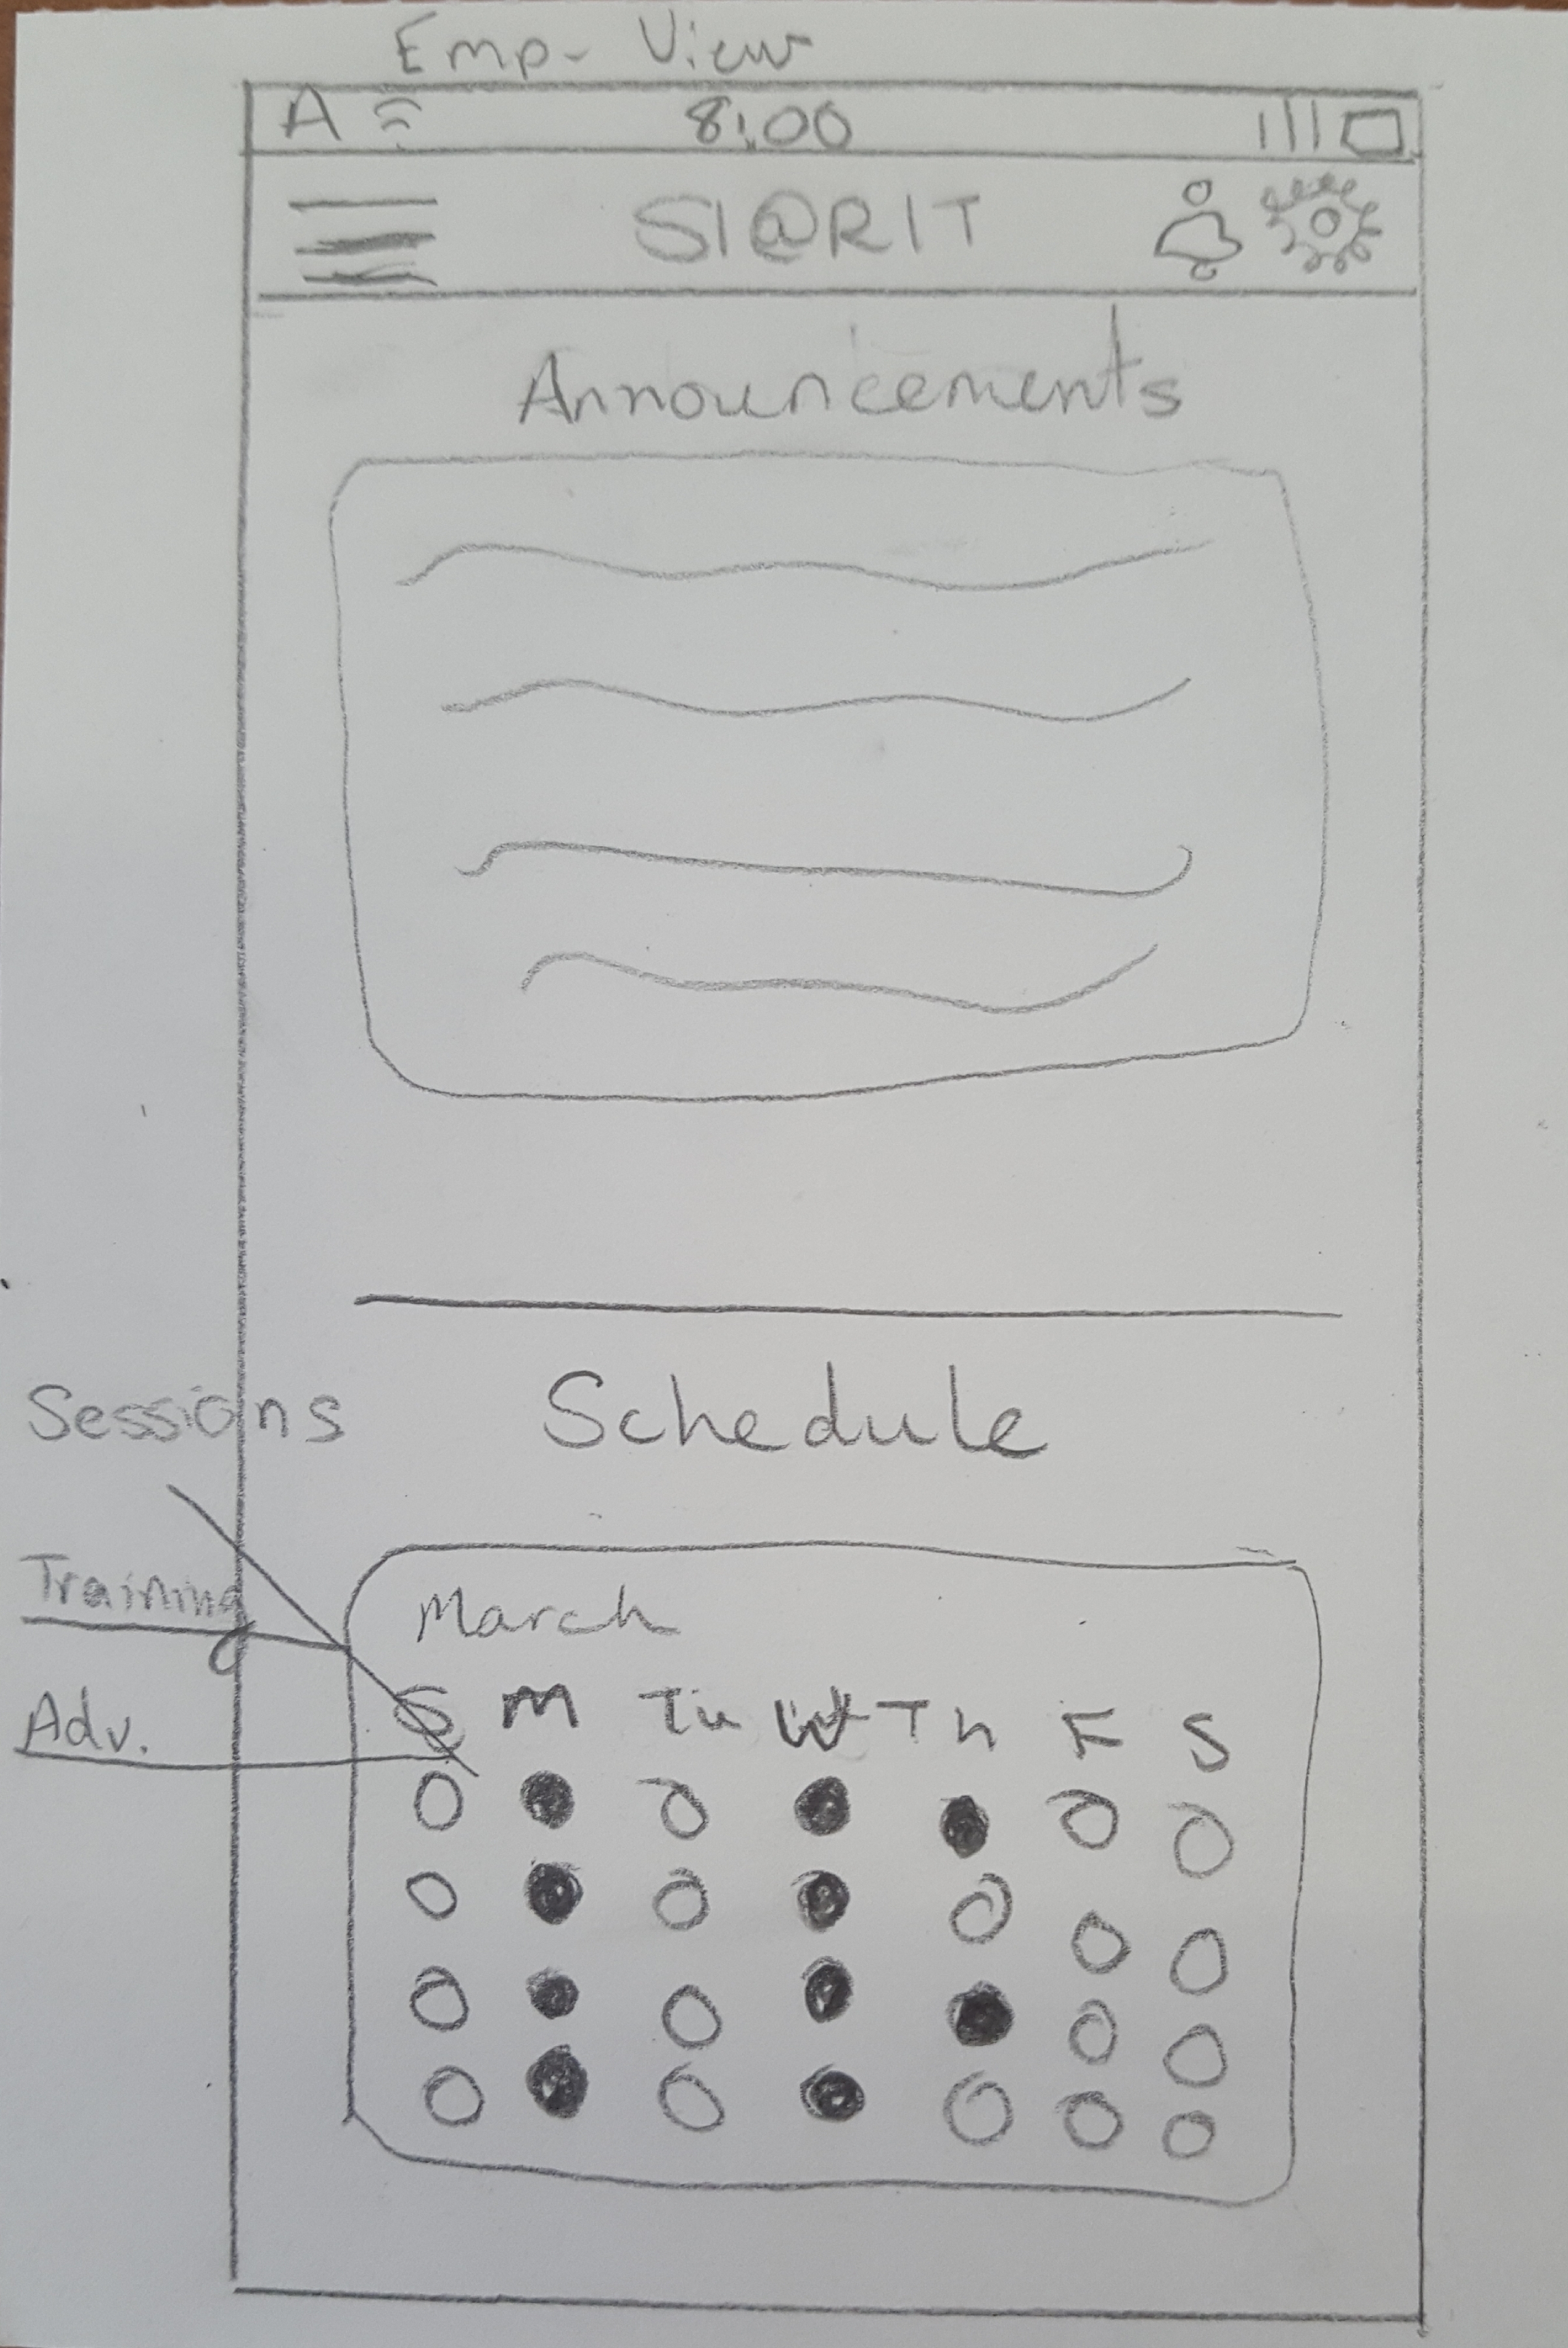 Emp- View
A 8:00
SI@RIT
Announcements
Schedule
Sessions
Training
Adv.
March
S M Tu W Th F S